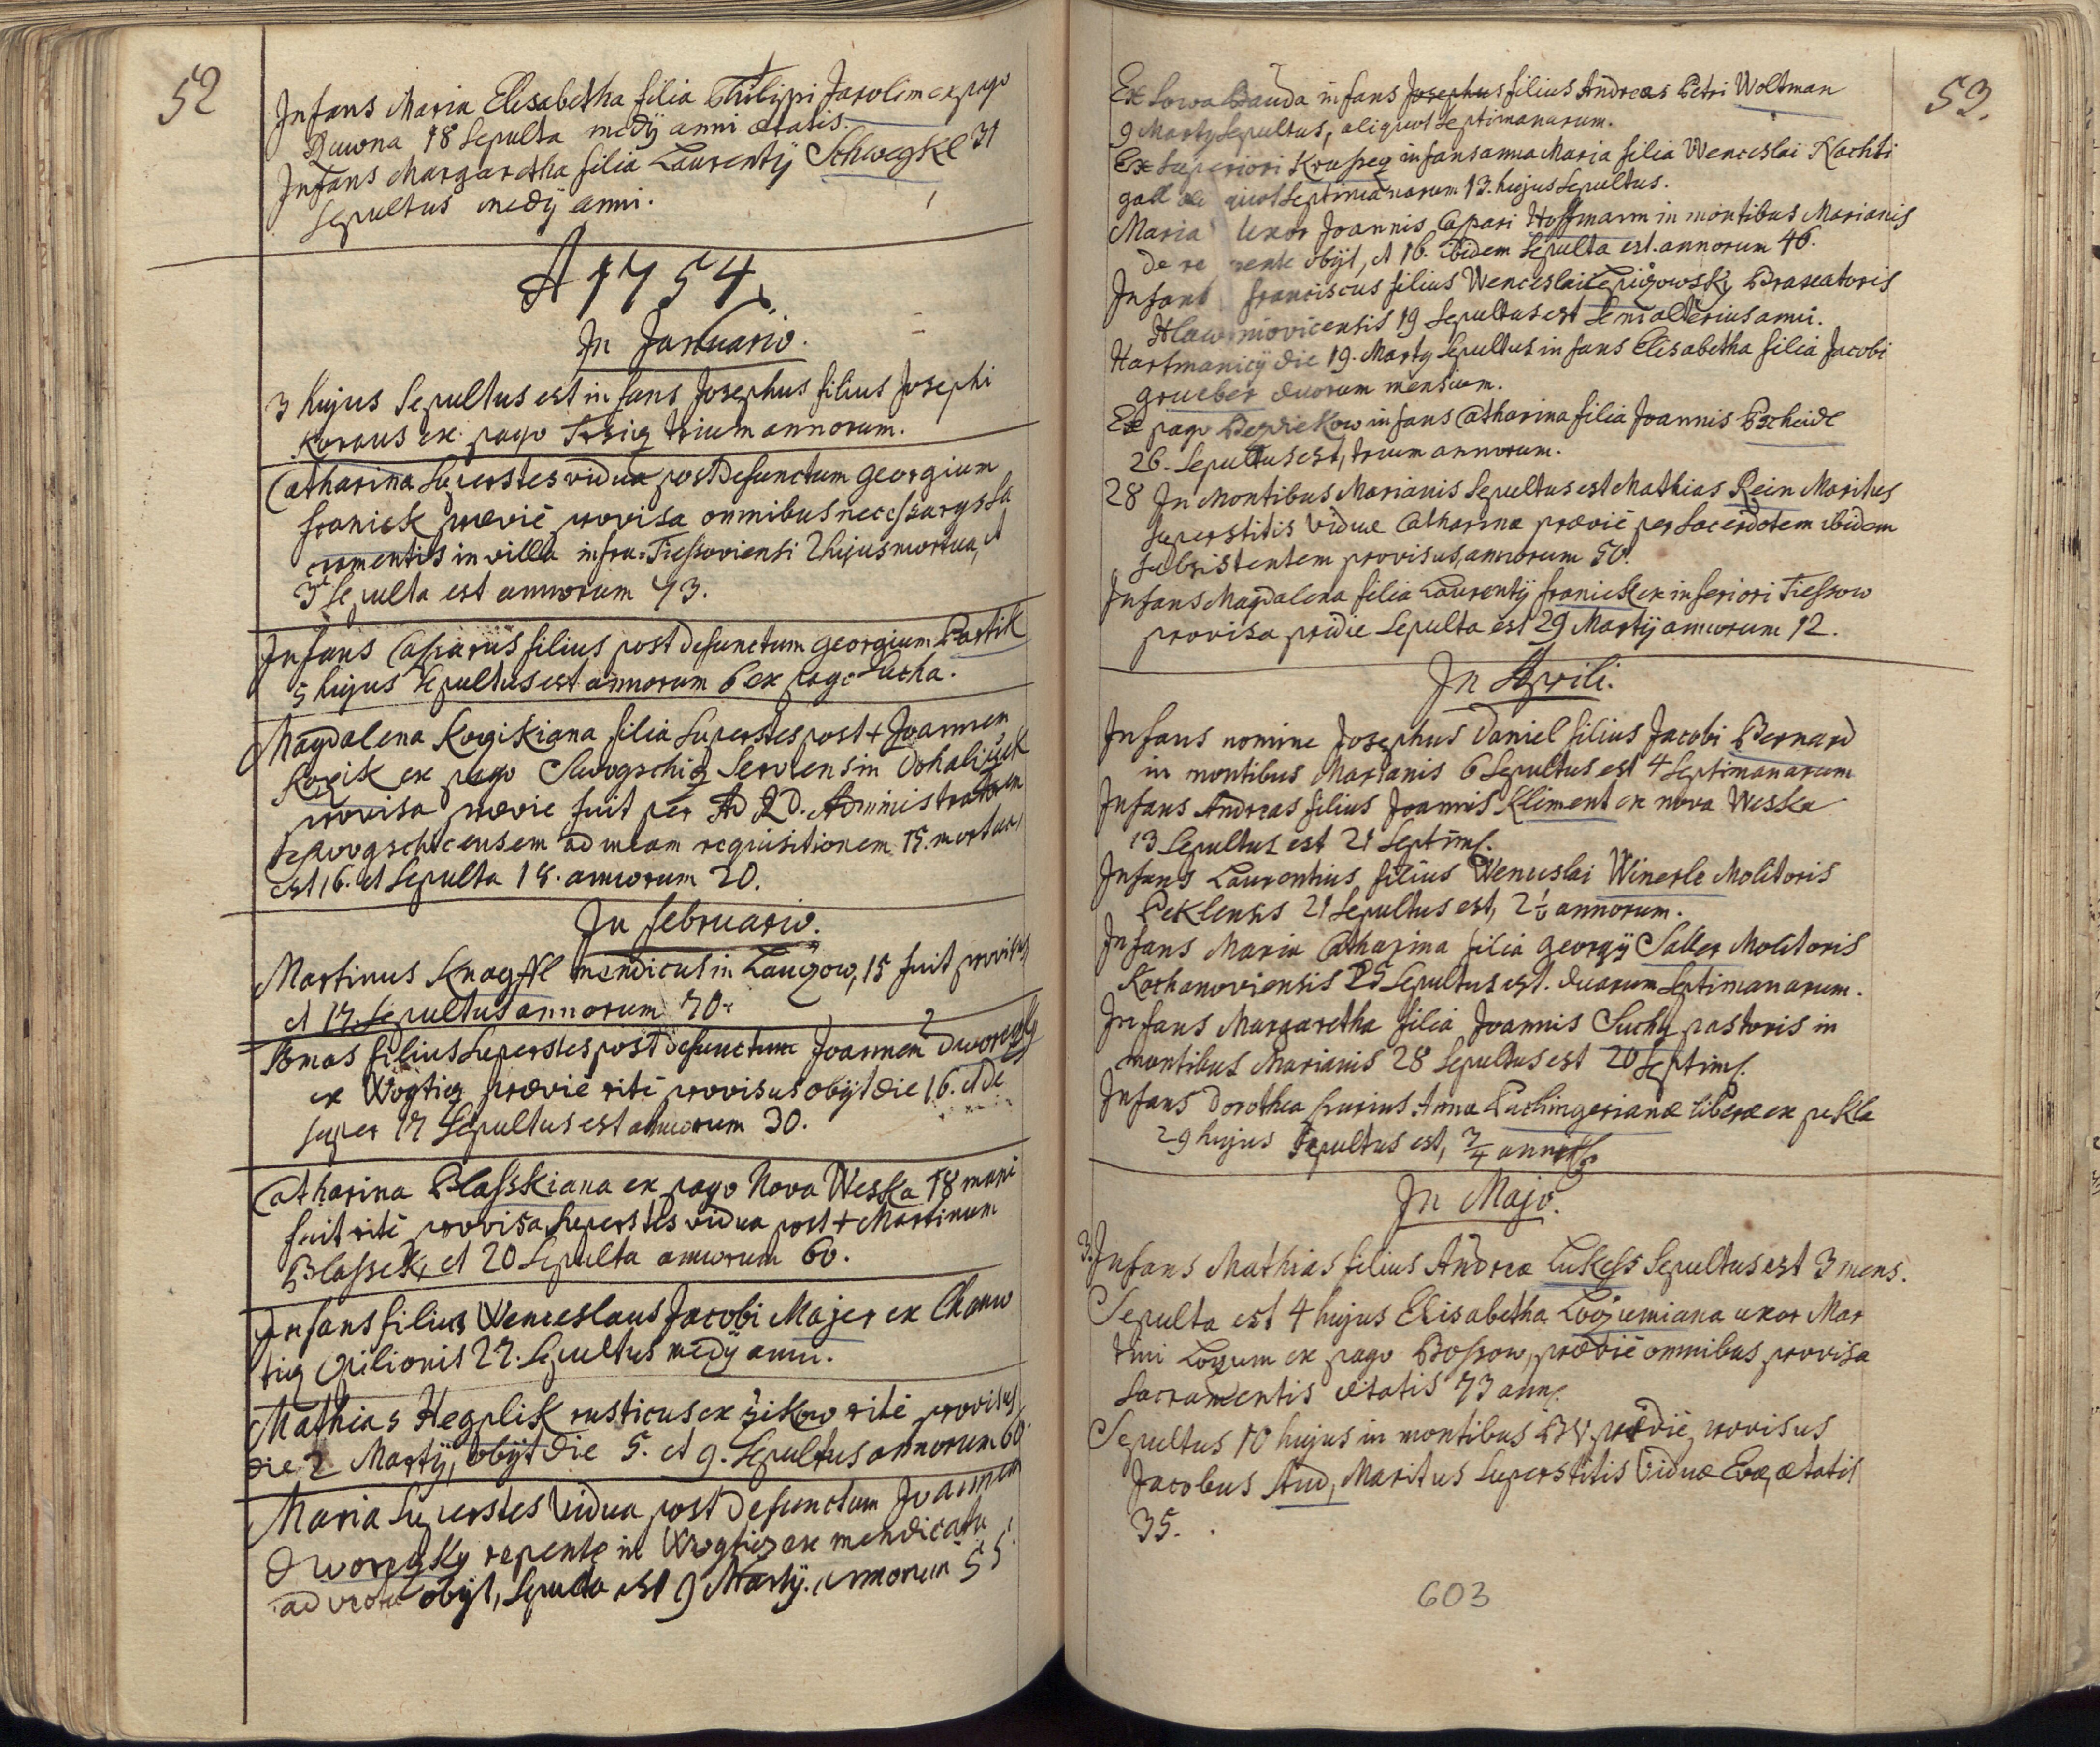 52
Infans Maria Elisabetha filia Philippi Jarolim ex pago
Ruwna 18 Sepulta medÿ anni ætatis.
Infans Margaretha filia Laurentÿ Schwegkl 31
Sepultus medÿ anni.
A 1754
In Januario.
3 hujus Sepultus est infans Josephus filius Josephi
Koraus ex pago trium annorum.
Catharina Superstes vidua post defunctum Georgium
franiek prævie provisa omnibus necessarys Sa
cramentis in villa infra-Tiessoviensi 2 hujus mortua, et
3 Sepulta est annorum 43.
Infans Casparus filius post defunctum Georgium Bartik
5 hujus Sepultus est annorum 6 ex pago Lucha.
Magdalena Kozikiana filia Superstes post + Joannem
Kozik ex pago Servien sin
provisa prævie fuit per AD RD. Administratorem
ad meam requisitionem 15. mortua
est 16. et Sepulta 18. annorum 20.
In februario.
Martinus Knagfl mendicus in Lauzow, 15 fuit provisus
et 17. Sepultus annorum 70.
Tomas filius Superstes post defunctum Joannem Dworezky
ex Wogtiez prævie rite provisus obÿt die 16. et de
super 17 Sepultus est annorum 30.
Catharina Blasskiana ex pago Nova Weska 18 mani
fuit rite provisa Superstes vidua post + Martinum
Blassek, et 20 Sepulta annorum 60.
Infans filius Wenceslaus Jacobi Majer ex Chanw
tiz Opilionis 27. Sepultus medÿ anni.
Mathias Hegplik rusticus ex žikow rite provisus
die 2 Martÿ, obÿt die 5. et 9. Sepultus annorum 60.
Maria Superstes vidua post defunctum Joannem
Dworezky repente in Wogtiez ex mendicatu
obÿt, Sepulta est 9 Martÿ. annorum 55
53.
Ex Sowa Bauda infans Josephus filius Andreas Petri Woltman
9 Marty Sepultus, aliquot Septimanarum.
Ex Superiori infans anna Maria filia Wenceslai Nachti
gall Septimanarum 13. hujus Sepultus.
Maria Uxor Joannis Caspari Hoffmann in montibus Marianis
de obÿt, et 16. ibidem Sepulta est. annorum 46.
Infans franciscus filius Wenceslai Lepizowsky Braxatoris
19 Sepultus est Semialterius anni.
Hartmanicÿ die 19. Marty Sepultus infans Elisabetha filia Jacobi
grueber duorum mensium.
Ex pago infans Catharina filia Joannis Pscheidl
26. Sepultus est, trium annorum.
28 In Montibus Marianis Sepultus est Mathias Rein Maritus
Superstitis Viduæ Catharinæ prævie per Sacerdotem ibidem
Subsistentem provisus, annorum 50.
Infans Magdalena filia Laurentÿ franiek ex inferiori Tiessow
provisa pridie Sepulta est 29 Martÿ annorum 12.
In Aprili.
Infans nomine Josephus Daniel filius Jacobi Bernard
in montibus Marianis 6 Sepultus est 4 Septimanarum
Infans Andreas filius Joannis Kliment ex nova Weska
13 Sepultus est 21 Septim.
Infans Laurentius filius Wenceslai Winerle Molitoris
Peklensis 21 Sepultus est, 2 annorum.
Infans Maria Catharina filia Georgÿ Saller Molitoris
Kochanoviensis 25 Sepultus est. duarum Septimanarum.
Infans Margaretha filia Joannis Suchy pastoris in
montibus Marianis 28 Sepultus est 20 Septim.
Infans Dorothea Anna liberæ ex pekla
29 hujus Sepultus est, 3/4 anni.
In Majo.
3. Infans Mathias filius Andreæ Lukess Sepultus est 3 mens.
Sepulta est 4 hujus Elisabetha Lozumiana uxor Mar
tini Lozum ex pago Bossow, prævie omnibus provisa
Sacramentis ætatis 73 ann.
Sepultus 10 hujus in montibus BV prævie provisus
Jacobus Aud, Maritus Superstitis Viduæ Evæ, ætatis
35.
603